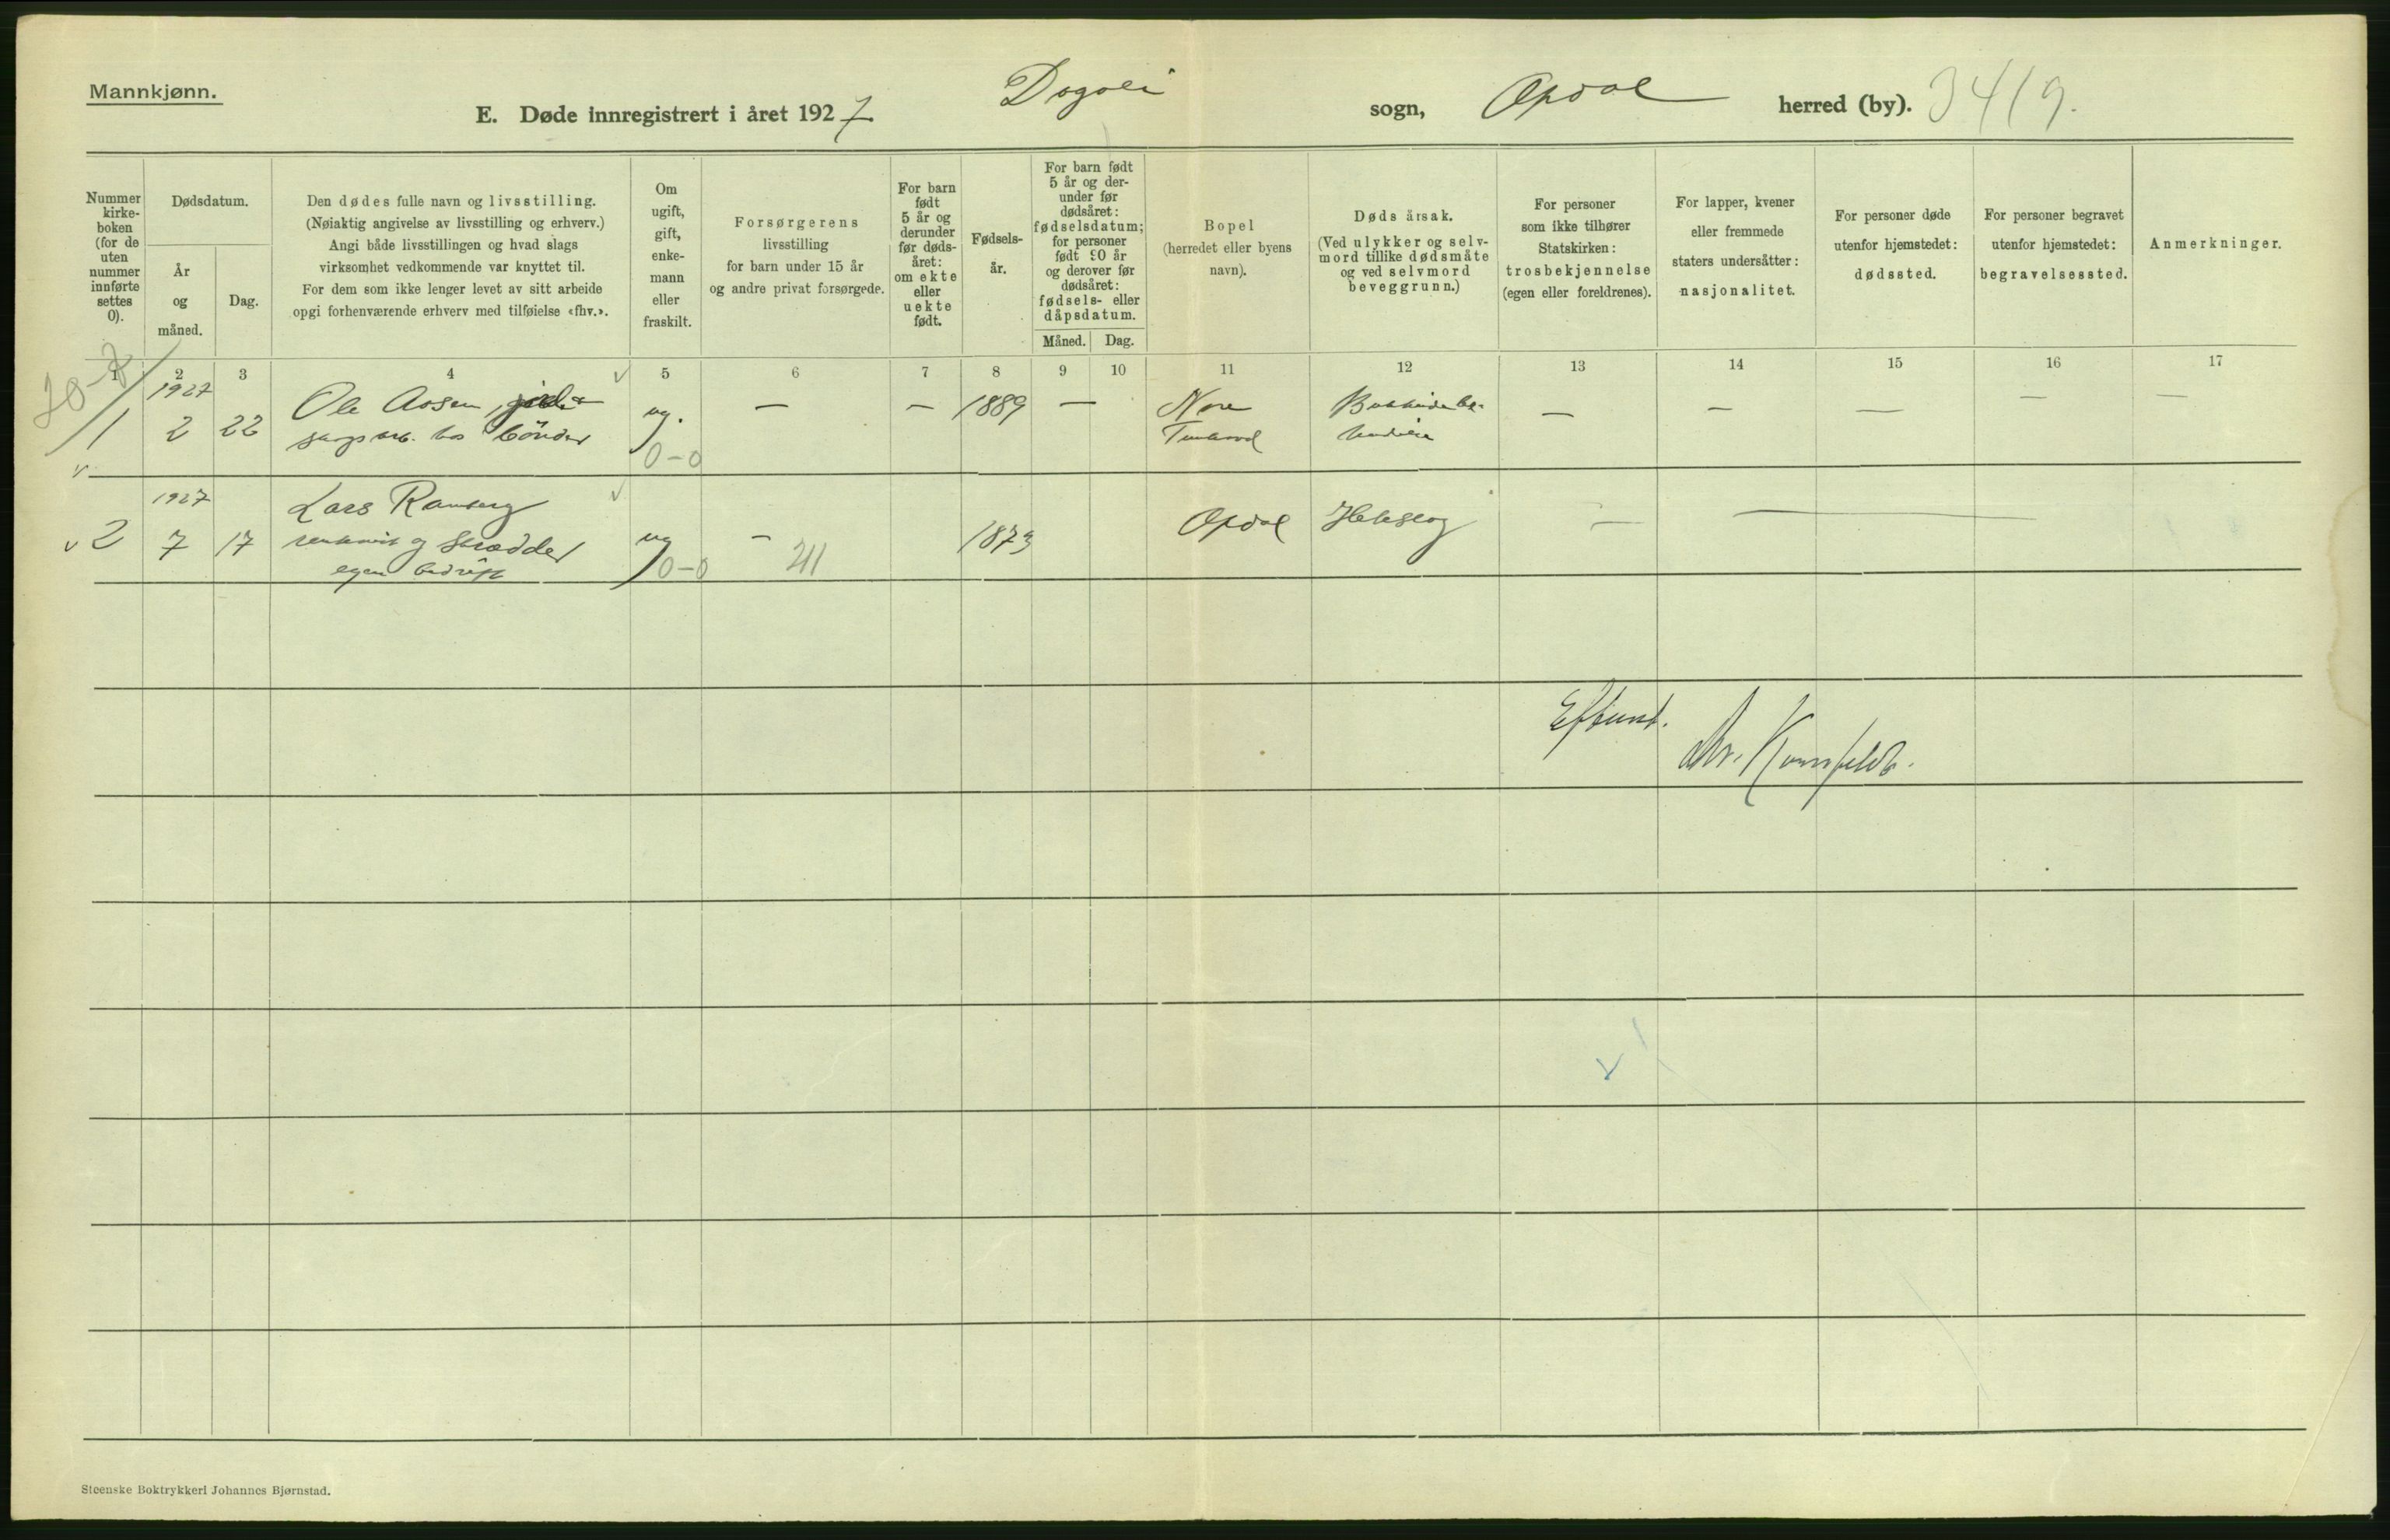 Mannkjønn.
E. Døde innregistrert i året 1927 Dagali sogn, Opdal herred (by). 3419.
Nummer
kirke-
boken
(for de
uten
nummer
innførte
settes
0).
Dødsdatum.
År
og
måned.
Dag.
Den dødes fulle navn og livsstilling.
(Nøiaktig angivelse av livsstilling og erhverv.)
Angi både livsstillingen og hvad slags
virksomhet vedkommende var knyttet til.
For dem som ikke lenger levet av sitt arbeide
opgi forhenværende erhverv med tilføielse «fhv.».
Om
ugift,
gift,
enke-
mann
eller
fraskilt.
Forsørgerens
livsstilling
for barn under 15 år
og andre privat forsørgede.
For barn
født
5 år og
derunder
før døds-
året:
om ekte
eller
uekte
født.
Fødsels-
år.
For barn født
5 år og der-
under før
dødsåret:
fødselsdatum;
for personer
født 90 år
og derover før
dødsåret:
fødsels- eller
dåpsdatum.
Måned. Dag.
Bopel
(herredet eller byens
navn).
Døds årsak.
(Ved ulykker og selv-
mord tillike dødsmåte
og ved selvmord
beveggrunn.)
For personer
som ikke tilhører
Statskirken:
trosbekjennelse
(egen eller foreldrenes).
For lapper, kvener
eller fremmede
staters undersåtter:
nasjonalitet.
For personer døde
utenfor hjemstedet:
dødssted.
For personer begravet
utenfor hjemstedet:
begravelsessted.
Anmerkninger.
1 2 3 4 5 6 7 8 9 10 11 12 13 14 15 16 17
1927
1 2 22 Ole Aasen, ug. — — 1889 — Nore — — — — —
skogsarb. hos bönder
0-0
1927
2 7 17 Lars Ramberg ug — 1873 Opdal Hjerteslag — —
og skrædder
egen bedrift 0-0 211
Steenske Boktrykkeri Johannes Bjørnstad.